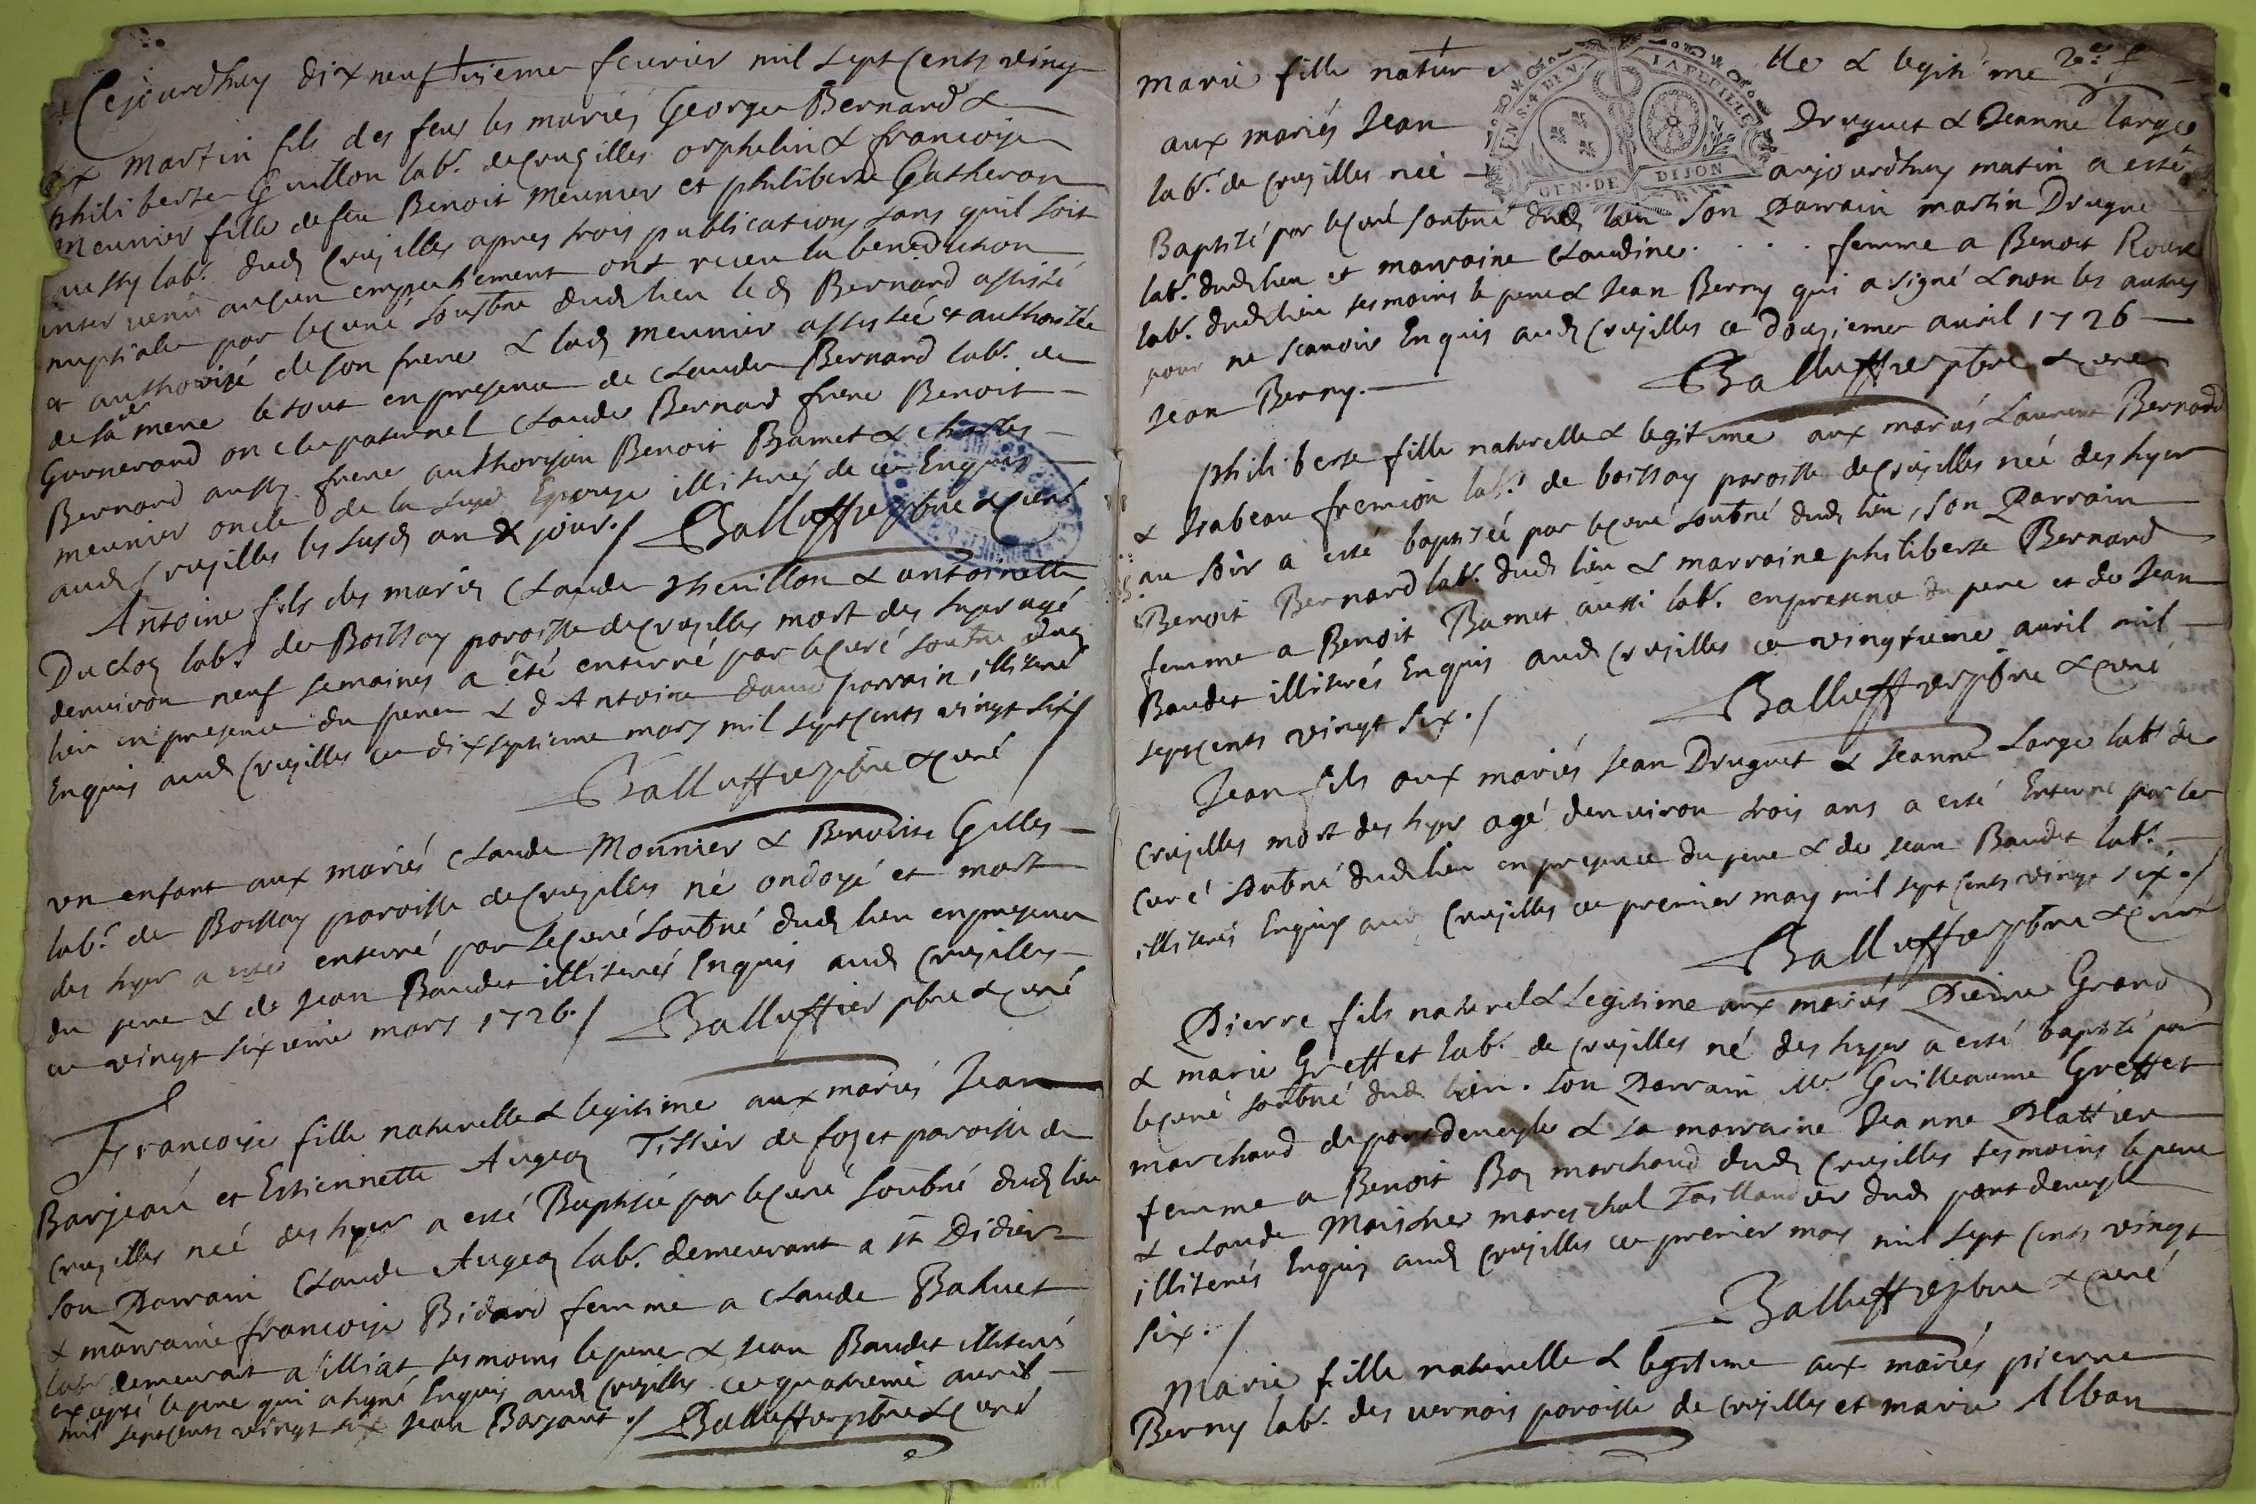 Cejourdhuy dixneufvieme feurier mil sept cents vingt
six martin fils des feus les mariés George Bernard &
philiberte Guillon labr. de Crusilles orphelin & francoise
meunier fille de feu Benoit meunier et philiberte Gatheron
aussy labr. dud Crusilles apres trois publications sans quil soit
interuenu aucun empechement ont receu la benediction
nuptiale par le curé soubné dud lieu led Bernard assisté
et authorisé de son frere & lad meunier assistée et authorisée
de sa mere le tout en presence de claude Bernard labr. de
oncle paternel Claude Bernard frere Benoit
Bernard aussy frere Benoit Bamet & charles
meunier oncle de la susd Epouse illiterés de ce Enquis
aud Crusilles les susd an & jour./ Balluffier pbre & curé
Antoine fils des mariés Claude Theuillon & antoinette
Duclos labr. de Boissay paroisse de Crusilles mort des hyer agé
denuiron neuf semaines a été enterré par le curé soubné dud
lieu en presence du pere & d Antoine parrain illiterés
Enquis aud Crusilles ce dixseptieme mars mil sept cents vingt six/
Balluffier pbre & curé
un enfant aux mariés Claude Monnier & Benoiste Gilles
labr. de Boissay paroisse de Crusilles né ondoyé et mort
des hyer a esté enterré par le curé soubné dud lieu en presence
du pere & de Jean Baudet illiterés Enquis aud Crusilles
ce vingt sixieme mars 1726./ Balluffier pbre & curé
Francoise fille naturelle & legitime aux mariés Jean
Barjeau et Estiennette Augeaz Tissier de paroisse de
Crusilles neé des hyer a esté Baptisée par le curé soubné dud lieu
son Parrain Claude Augeaz labr. demeurant a st Didier
& marraine francoise Bidard femme a Claude Bahuet
labr demeurant a illiat tesmoins le pere & Jean Baudet illiterés
excepté le pere qui a signé Enquis aud Crusilles ce quatrieme auril
mil sept cents vingt six Jean Barjaut./ Balluffier pbre & curé
marie fille naturelle & legitime 2e. f
GEN. DE DIJON
aux mariés Jean Druguet & Jeanne large
labr. de Crusilles neé aujourdhuy matin a esté
Baptisé par le curé soubné dud lieu son Parrain martin Drugue
labr. dud lieu et marraine Claudine . . . . femme a Benoit Roux
labr. dud lieu tesmoins le pere & Jean Berny qui a signé & non les autres
pour ne scauoir Enquis aud Crusilles ce douzieme auril 1726
Jean Berny. Balluffier pbre & curé
philiberte fille naturelle & legitime aux mariés Laurent Bernard
& Isabeau fremion labr. de boissay paroisse de Crusilles neé des hyer
au soir a esté baptisée par le curé soubné dud lieu, son Parrain
Benoit Bernard labr. dud lieu & marraine philiberte Bernard
femme a Benoit Bamet aussi labr. en presence du pere et de Jean
Baudet illiterés Enquis aud Crusilles ce vingtieme auril mil
sept cents vingt six./ Balluffier pbre & curé
Jean fils aux mariés Jean Druguet & Jeanne Large labr de
Crusilles mort des hyer agé denuiron trois ans a esté Enterré par le
curé soubné dud lieu en presence du pere & de Jean Baudet labr.
illiterés Enquis aud Crusilles ce premier may mil sept cents vingt six./
Balluffier pbre & curé
Pierre fils naturel & Legitime aux mariés Pierre Grand
& marie Greffet labr. de Crusilles né des hyer a esté baptisé par
le curé soubné dud lieu. son Parrain Mr Guilleaume Greffet
marchand de pontdeueyle & sa marraine Jeanne Plattier
femme a Benoit Boz marchand dud Crusilles tesmoins le pere
& Claude Moischer mareschal Taillandier dud pontdeueyle
illiterés Enquis aud Crusilles ce premier may mil sept cents vingt
six./ Balluffier pbre & curé
Marie fille naturelle & legitime aux mariés pierre
Berny labr. des uernois paroisse de Crusilles et marie Alban